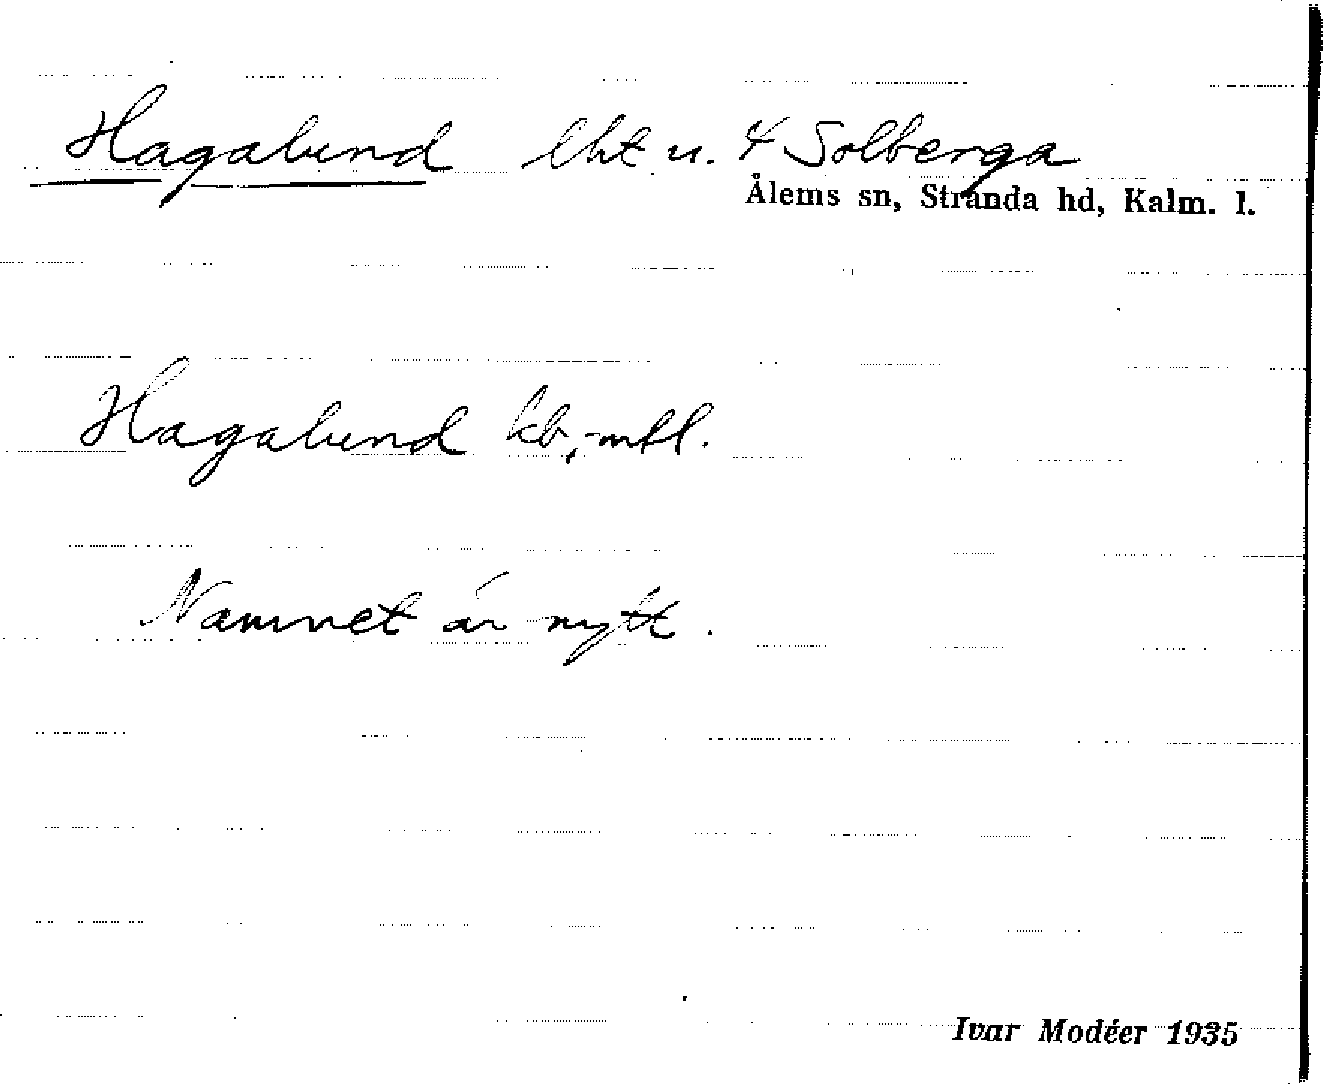 Hagalund lht u. 4 Solberga
Ålems sn, Stranda hd, Kalm. l.
Hagalund kb,-mtl.
Namnet är nytt.
Ivar Modéer 1935